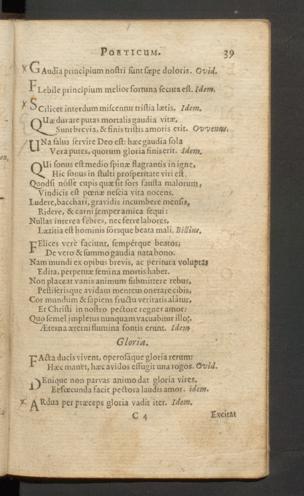 POETICUM. 39
GAudia principium nostri sunt sæpe doloris. Ovid.
FLebile principium melior fortuna secuta est. Idem.
SCilicet interdum miscentur tristia lætis. Idem.
QUæ durare putas mortalis gaudia vitæ,
Sunt brevia, & finis tristis amoris erit. Ovvenus.
UNa salus servire Deo est: hæc gaudia sola
Vera putes, quorum gloria finis erit. Idem.
QUi sonus est medio spinæ flagrantis in igne,
Hic sonus in stulti prosperitate viri est.
Quodsi nôsse cupis quæ sit sors fausta malorum,
Vindicis est pœnæ nescia vita nocens.
Ludere, bacchari, gravidis incumbere mensis,
Ridere, & carni semper amica sequi:
Nullas interea febres, nec ferre labores,
Lætitia est hominis sorsque beata mali. Billius.
FElices verè faciunt, sempérque beatos;
De vero & summo gaudia nata bono.
Nam mundi ex opibus brevis, ac peritura voluptas
Edita, perpetuæ semina mortis habet.
Non placeat vanis animum submittere rebus,
Pestiferisque avidam mentem onerare cibis,
Cor mundum & sapiens fructu veritatis alâtur,
Et Christi in nostro pectore regnet amor:
Quo semel impletus nunquam vacuabitur illo;
Æterna æterni flumina fontis erunt. Idem
Gloria.
FActa ducis vivent, operosáque gloria rerum:
Hæc manet, hæc avidos effugit una rogos. Ovid.
DEnique non parvas animo dat gloria vires,
Et fœcunda facit pectora laudis amor. idem.
ARdua per præceps gloria vadit iter. Idem.
C 4 Excitat